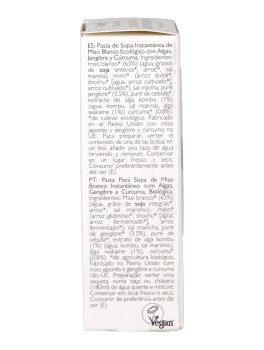 ES: Pasta de Sopa Instantánea de
Miso Blanco Ecológico con Algas,
Jengibre y Cúrcuma. Ingredientes:
miso blanco* (63%) (agua, granos
de soja enteros*, arroz*, sal
marina), mirin* (arroz dulce*,
shochu* [agua, arroz*, arroz
cultivado*], agua, arroz*, arroz
cultivado*), sal marina, puré
jengibre* (3.5%), puré de cebolla*,
extracto de alga kombu (1%)
(agua, kombu, sal marina), alga
wakame (1%), cúrcuma* (0.8%).
*de cultivo ecológico. Fabricado
en el Reino Unido con miso
japonés y jengibre y cúrcuma no
UE. Para preparar, verter el
contenido de una de las bolsitas en
un bol, añadir una taza de agua
hirviendo y remover. Conservar
en un lugar fresco y seco.
Consumir preferentemente antes
del ver (E).
PT: Pasta Para Sopa de Miso
Branco Instantânea com Algas,
Gengibre e Curcuma, Biológica.
Ingredientes: Miso branco* (63%)
(água, grãos de soja integrais*,
arroz*, sal marinho), mirin*
(arroz glutinoso*, shochu* [água,
arroz*, arroz fermentado*], água,
arroz*, arroz fermentado*), sal
marinho, puré de
gengibre* (3.5%), puré de
cebola*, extrato de alga kombu
(1%) (água, kombu, sal marinho),
alga wakame (1%), curcuma*
(0.8%). *de agricultura biológica.
Fabricado no Reino Unido com
miso japonês e gengibre e curcuma
não-UE. Preparação: verter uma
saqueta numa taça ou chávena
(180ml) de água quente e misture.
Conservar em local fresco e seco.
Consumir de preferência antes de
ver (E).
Vegan